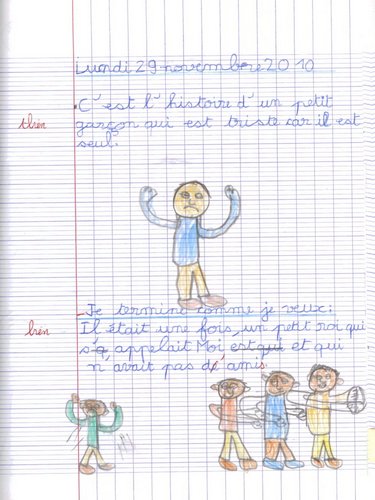 Lundi 29 novembre 2010
C'est l'histoire d'un petit
tbien garçon qui est triste car il est
seul.
Je termine comme je veux:
bien Il était une fois, un petit roi qui
s'appelait Moi est qui et qui
n'avait pas d'amis.